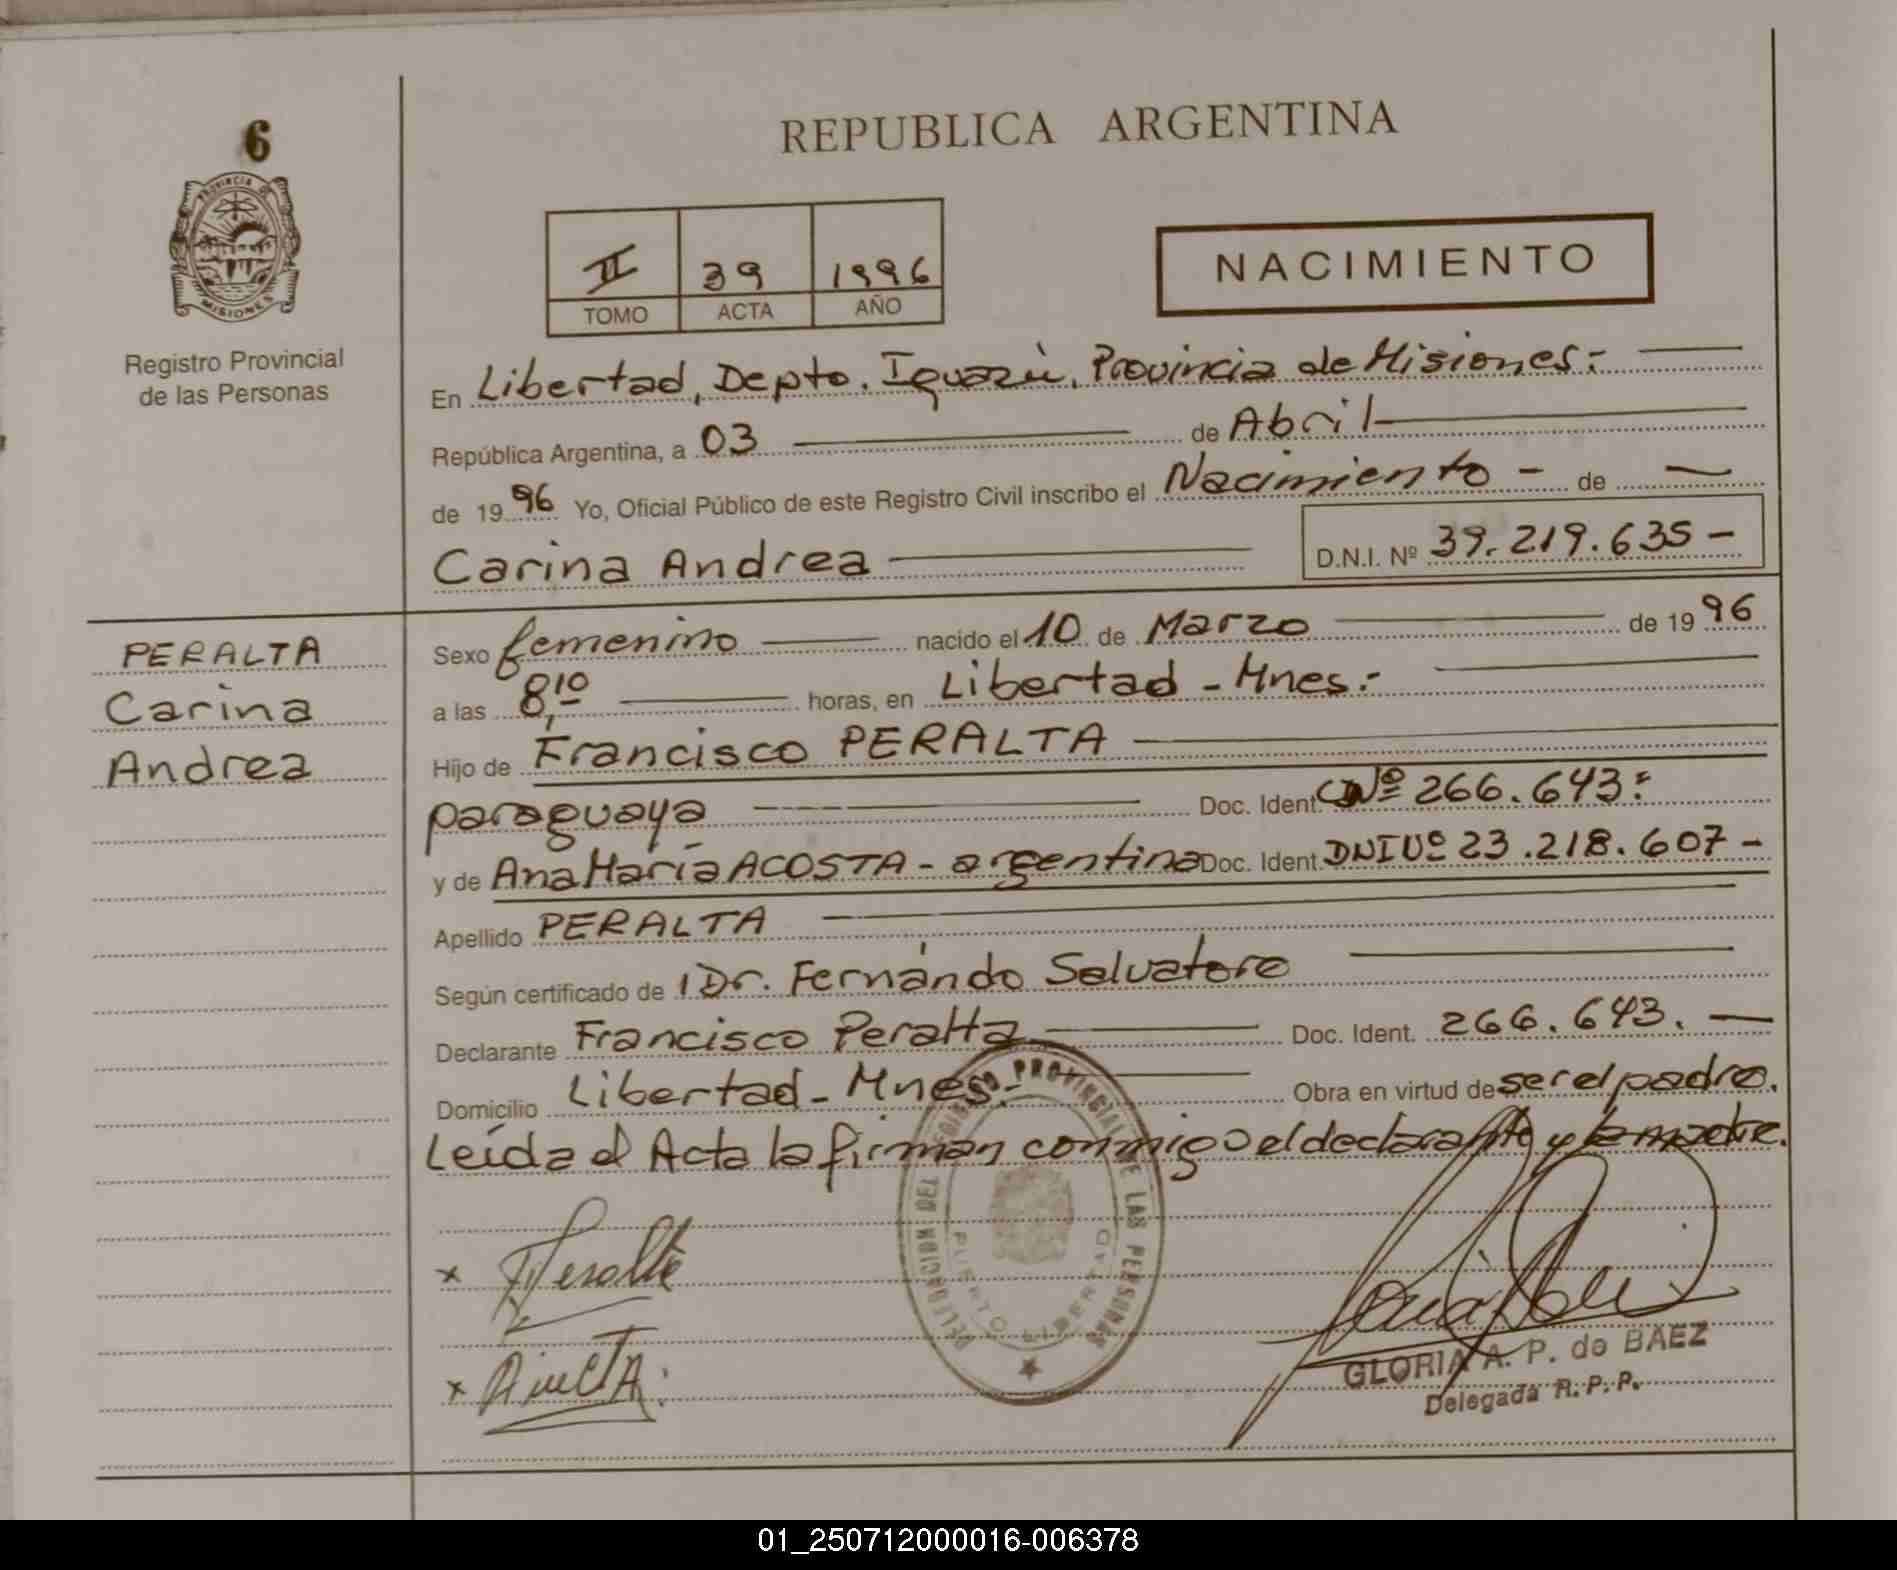 6
REPUBLICA ARGENTINA
PROVINCIA DE
MISIONES
Registro Provincial
de las Personas
II 39 1996
TOMO ACTA AÑO
NACIMIENTO
En Libertad, Depto. Iguazú, Provincia de Misiones:-
República Argentina, a 03 de Abril
de 1996 Yo, Oficial Público de este Registro Civil inscribo el Nacimiento - de -
Carina Andrea D.N.I. Nº 39.219.635-
PERALTA
Carina
Andrea
Sexo femenino nacido el 10 de Marzo de 1996
a las 8,10 horas, en Libertad - Mnes.-
Hijo de Francisco PERALTA
paraguaya Doc. Ident. CNº 266.643:
y de Ana María ACOSTA - argentina Doc. Ident. DNI Nº 23.218.607-
Apellido PERALTA
Según certificado de Dr. Fernándo Salvatore
Declarante Francisco Peralta Doc. Ident. 266.643.
Domicilio Libertad - Mnes.- Obra en virtud de ser el padre.
Leída el Acta la firman conmigo el declarante y la madre.
DELEGACION DEL REGISTRO PROVINCIAL DE LAS PERSONAS
PUERTO LIBERTAD
x Peralta
x
GLORIA A. P. de BAEZ
Delegada R. P. P.
01_250712000016-006378